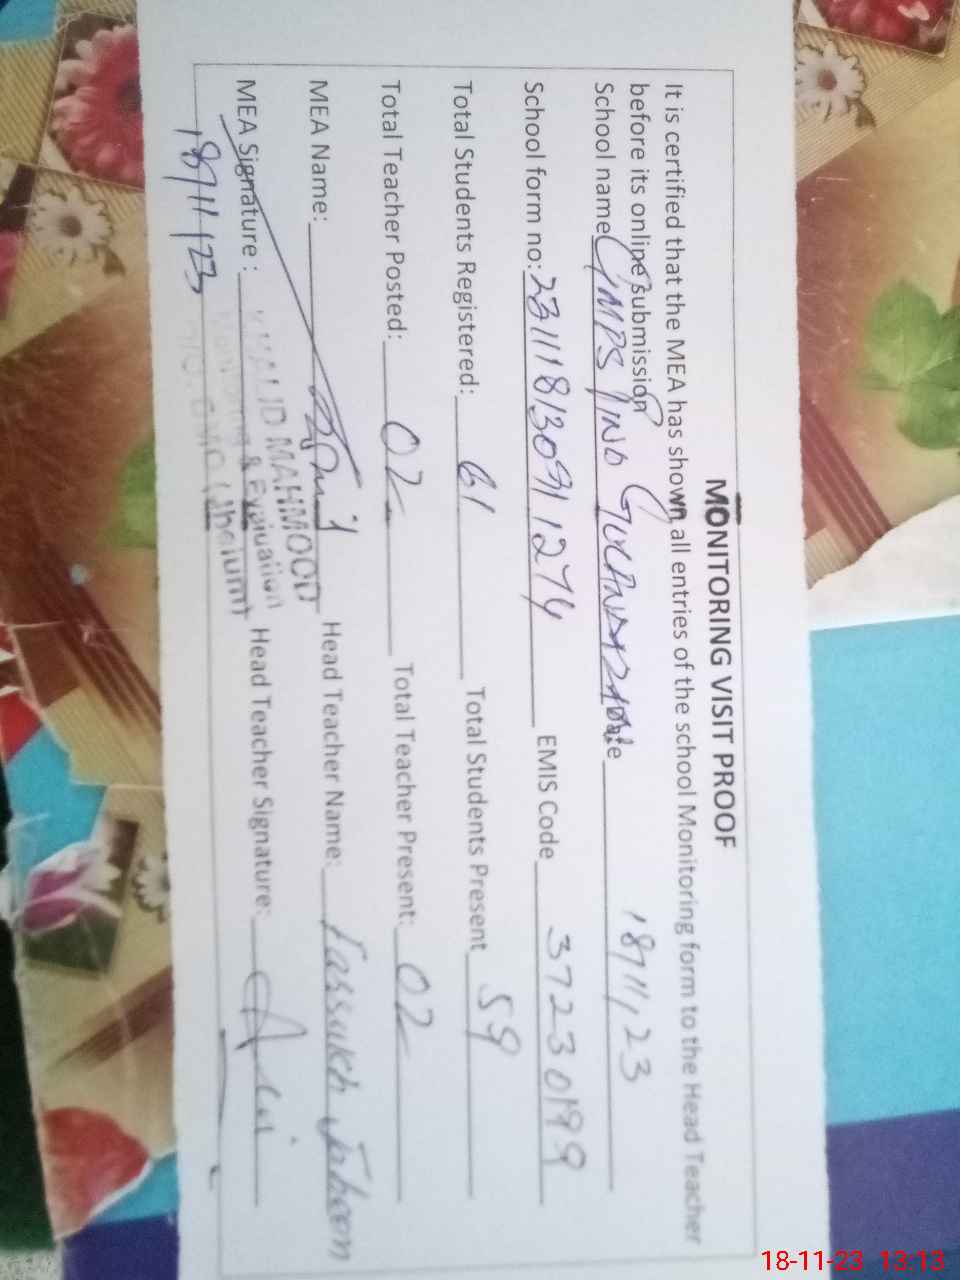 MONITORING VISIT PROOF
It is certified that the MEA has shown all entries of the school Monitoring form to the Head Teacher
before its online submission
School name GMPS Pind Date 18/11/23
School form no: 231118130911274 EMIS Code 37230199
Total Students Registered: 61 Total Students Present 59
Total Teacher Posted: 02 Total Teacher Present: 02
MEA Name: Head Teacher Name:
MEA Signature: Head Teacher Signature:
KHALID MAHMOOD
Monitoring & Evaluation
(Jhelum)
18/11/23
18-11-23 13:13